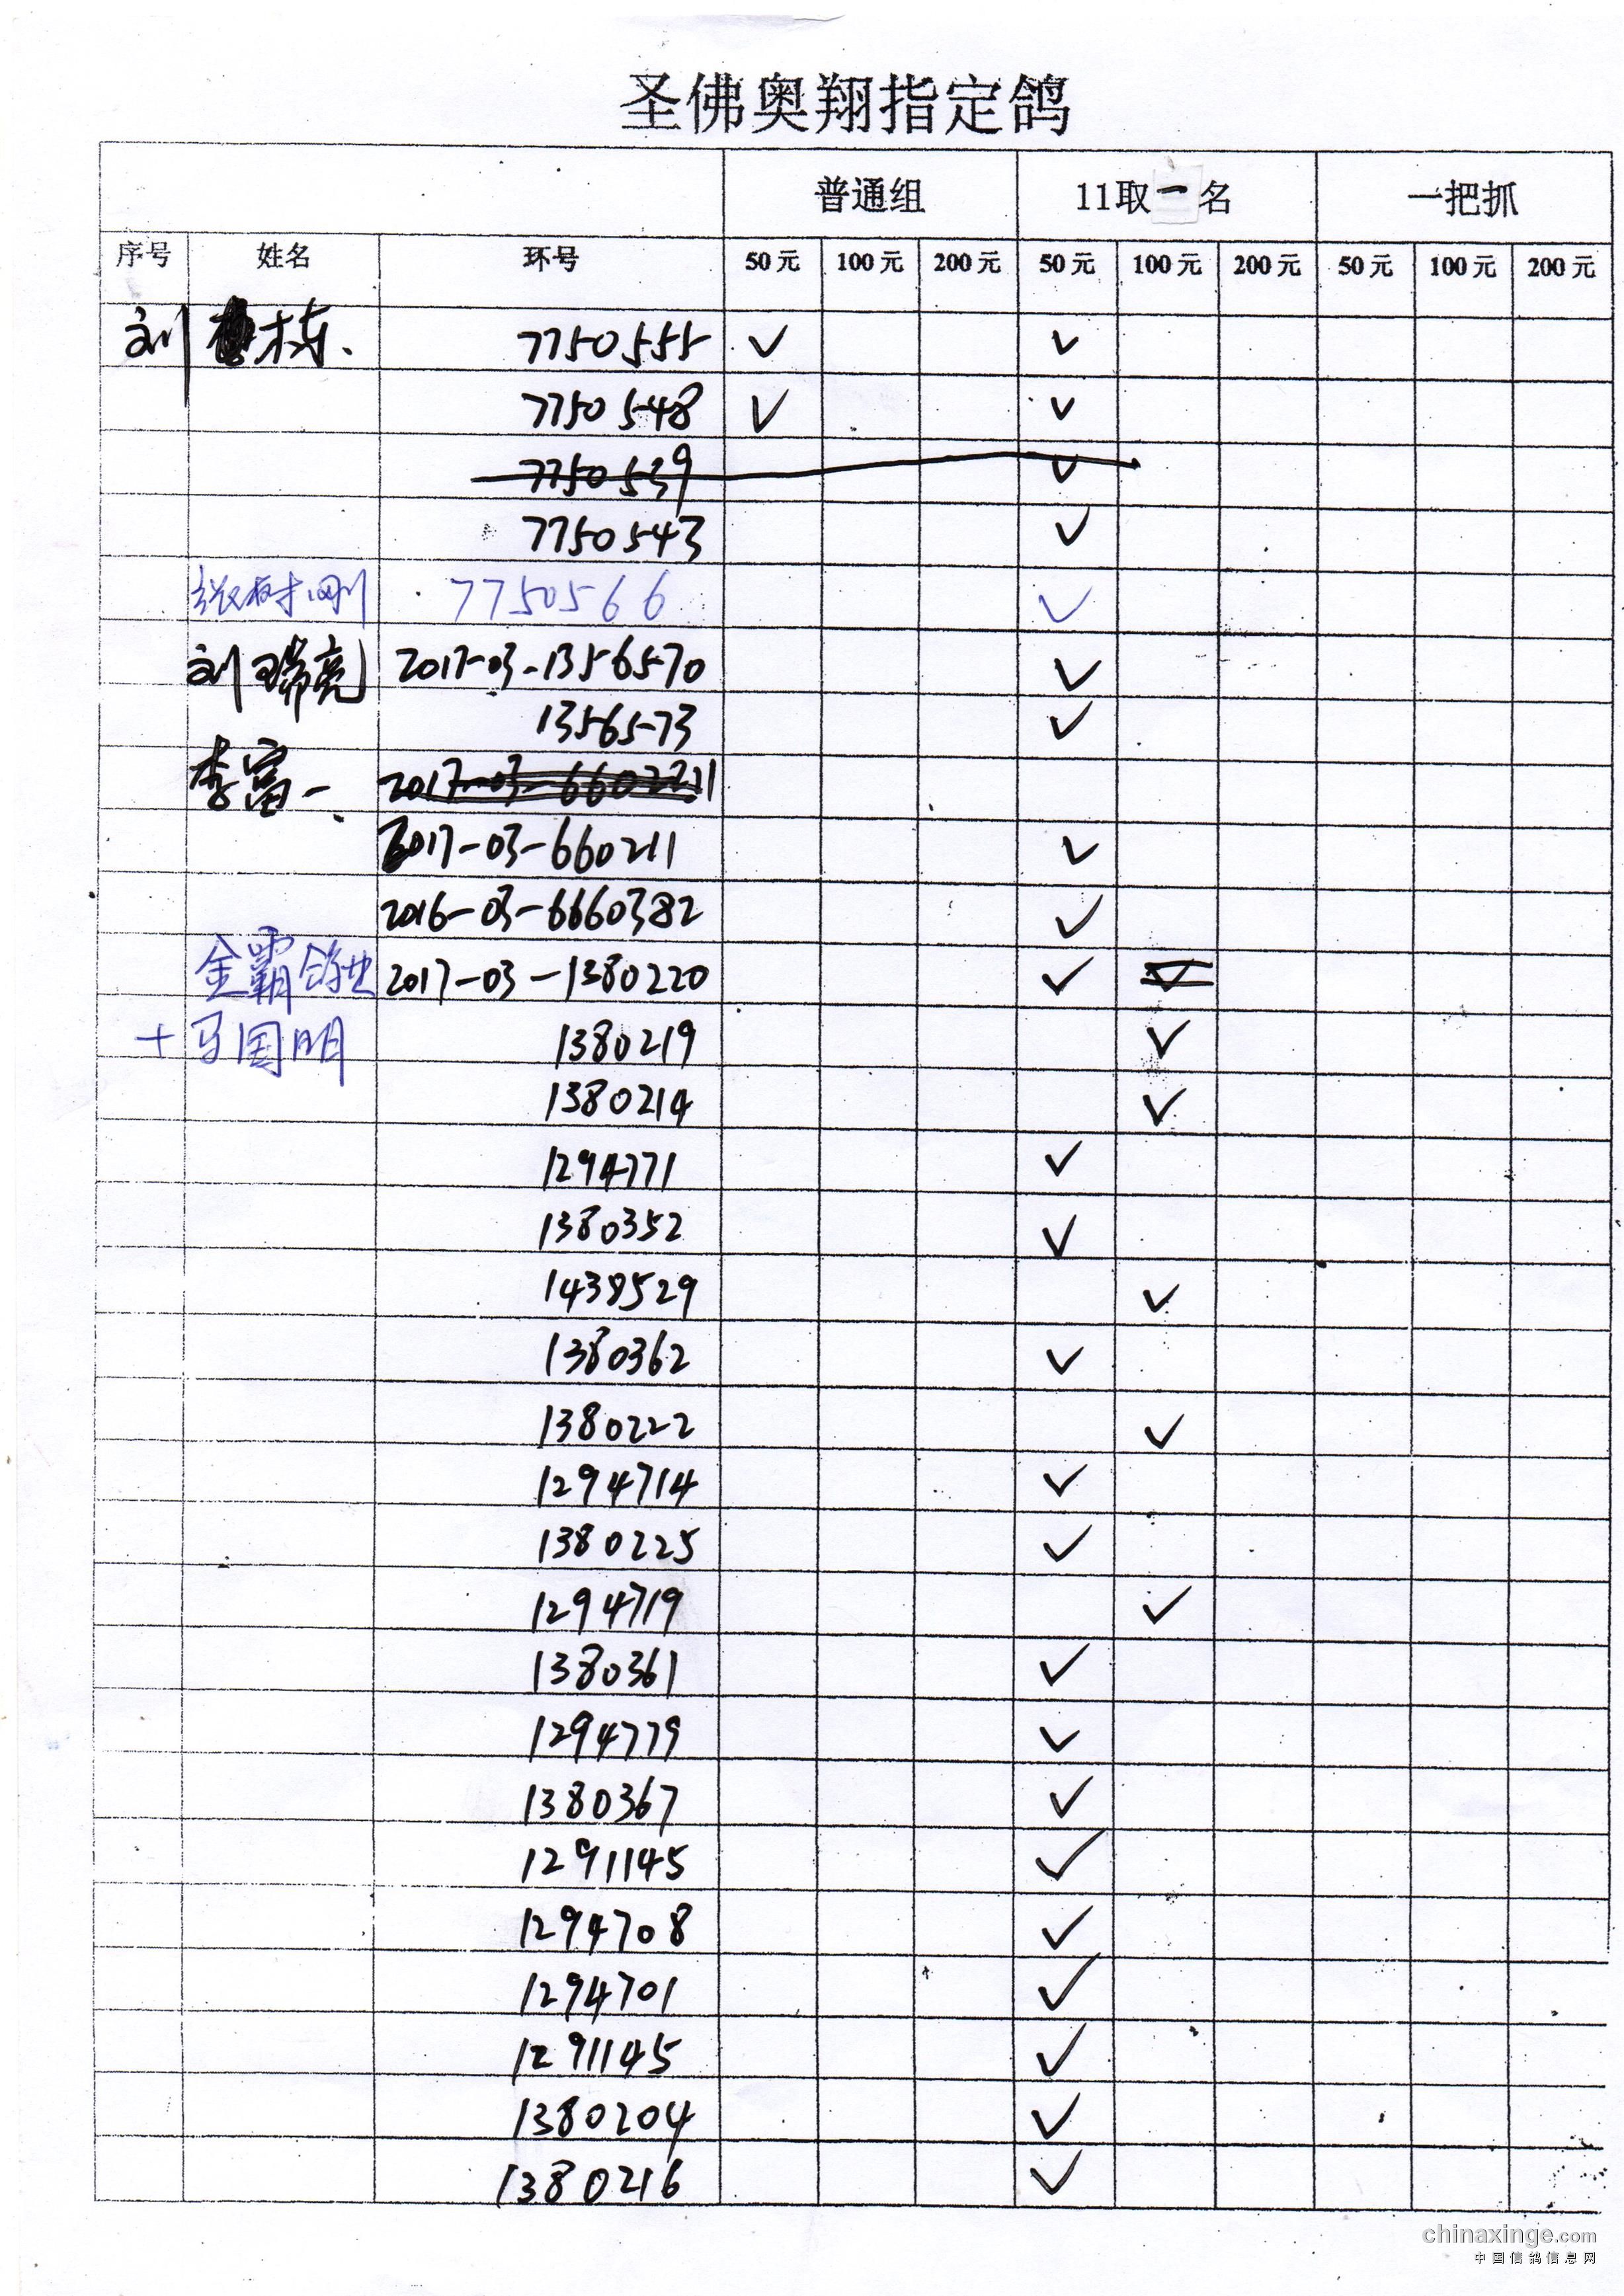 圣佛奥翔指定鸽
普通组 11取一名 一把抓
序号 姓名 环号 50元 100元 200元 50元 100元 200元 50元 100元 200元
刘 栋. 7750555 ✓ ✓
7750548 ✓ ✓
7750539 ✓
7750543 ✓
张树刚 7750566 ✓
刘瑞亮 2017-03-1356570 ✓
1356573 ✓
李富一 2017-03-6602221
2017-03-660211 ✓
2016-03-6660382 ✓
金霸鸽业 2017-03-1380220 ✓ ✓
+马国明 1380219 ✓
1380214 ✓
1294771 ✓
1380352 ✓
1438529 ✓
1380362 ✓
1380222 ✓
1294714 ✓
1380225 ✓
1294719 ✓
1380361 ✓
1294779 ✓
1380367 ✓
1291145 ✓
1294708 ✓
1294701 ✓
1291145 ✓
1380204 ✓
1380216 ✓
chinaxinge.com
中国信鸽信息网